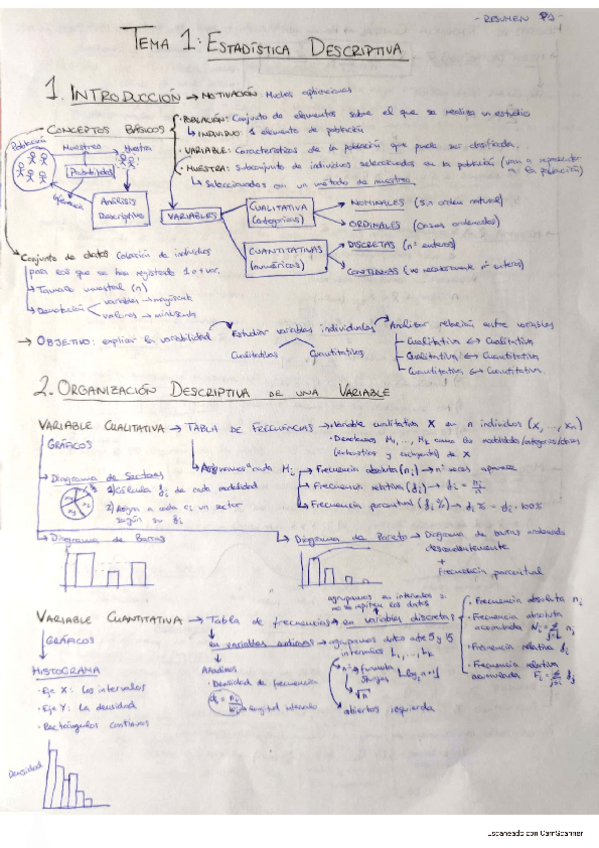 - RESUMEN P1 -
TEMA 1: ESTADÍSTICA DESCRIPTIVA
1. INTRODUCCIÓN → MOTIVACIÓN: Muchas aplicaciones
CONCEPTOS BÁSICOS
• POBLACIÓN: Conjunto de elementos sobre el que se realiza un estudio
↳ INDIVIDUO: 1 elemento de población
• VARIABLE: Características de la población que puede ser clasificada.
• MUESTRA: Subconjunto de individuos seleccionados en la población
↳ Seleccionados con un método de muestreo
Población
Muestreo
Muestra
Inferencia
Análisis
Descriptivo
VARIABLES
CUALITATIVA
(categorías)
NOMINALES (Sin orden natural)
ORDINALES
CUANTITATIVAS
(numéricas)
DISCRETAS (nº enteros)
CONTINUAS (no necesariamente nº enteros)
Conjunto de datos: Colección de individuos
para los que se han registrado 1 o + var.
→ Tamaño muestral (n)
→ Denotación
variables → mayúscula
valores → minúscula
→ OBJETIVO: explicar la variabilidad
Estudiar variables individuales
Cualitativas
Cuantitativas
Analizar relación entre variables
Cualitativa ↔ Cualitativa
Cualitativa ↔ Cuantitativa
Cuantitativa ↔ Cuantitativa
2. ORGANIZACIÓN DESCRIPTIVA DE UNA VARIABLE
VARIABLE CUALITATIVA → TABLA DE FRECUENCIAS → • Variable cualitativa X en n individuos (x₁, ..., xₙ)
• Denotamos M₁, ..., Mₖ como las modalidades/categorías/clases
(exhaustivas y excluyentes) de X
GRÁFICOS
↳ Asignamos a cada Mᵢ
→ Frecuencia absoluta (nᵢ) → nº veces aparece
→ Frecuencia relativa (fᵢ) → fᵢ = nᵢ/n
↳ Frecuencia porcentual (fᵢ%) → fᵢ% = fᵢ · 100%
→ Diagrama de Sectores
1) Calcula fᵢ de cada modalidad
2) Asigna a cada cs un sector
según su fᵢ
↳ Diagrama de Barras
↳ Diagrama de Pareto → Diagrama de barras ordenado
descendentemente
+
frecuencia porcentual
VARIABLE CUANTITATIVA → Tabla de frecuencias → en variables discretas
agrupamos en intervalos si
no se repiten los datos
• Frecuencia absoluta nᵢ
• Frecuencia absoluta
acumulada Nᵢ = Σ nⱼ
• Frecuencia relativa fᵢ
• Frecuencia relativa
acumulada Fᵢ = Σ fⱼ
GRÁFICOS
en variables continuas → agrupamos datos entre 5 y 15
intervalos L₁, ..., Lₖ
Añadimos
• Densidad de frecuencia
→ longitud intervalo
nº
fórmula
Sturges
log₂ n + 1
√n
abiertos izquierda
HISTOGRAMA
• Eje X: Los intervalos
• Eje Y: La densidad
• Rectángulos continuos
Densidad
Escaneado con CamScanner